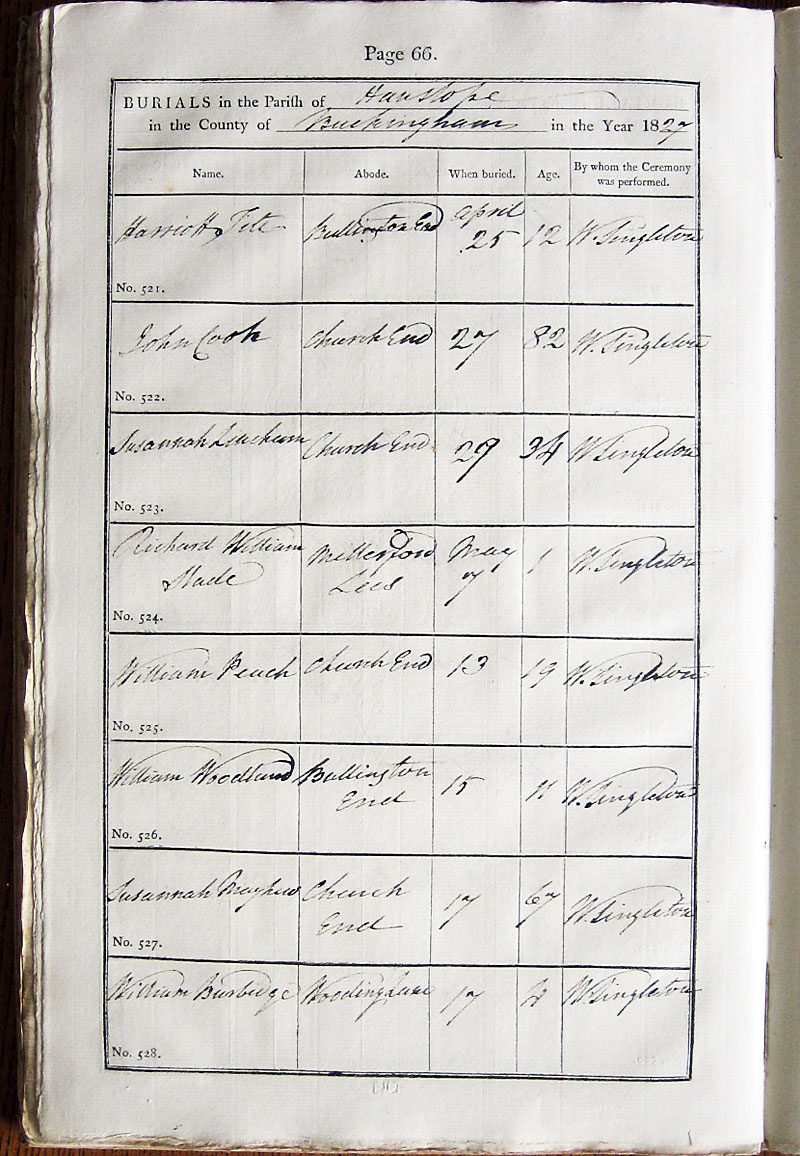 Page 66.
BURIALS in the Parish of Hanslope
in the County of Buckingham in the Year 1827
Name. Abode. When buried. Age. By whom the Ceremony was performed.
Harriott Tite Bullington End April 25 12 W. Singleton
No. 521.
John Cook Church End 27 82 W. Singleton
No. 522.
Susannah Church End 29 34 W. Singleton
No. 523.
Richard William Slade Lees May 7 1 W. Singleton
No. 524.
William Peach Church End 13 19 W. Singleton
No. 525.
William Woodland Bullington End 15 11 W. Singleton
No. 526.
Susannah Mayhew Church End 17 67 W. Singleton
No. 527.
William Burbidge Wooding Lane 17 W. Singleton
No. 528.